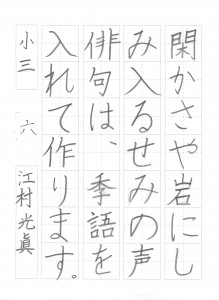 閑かさや岩にし
み入るせみの声
俳句は、季語を
入れて作ります。
小三 六 江村光眞